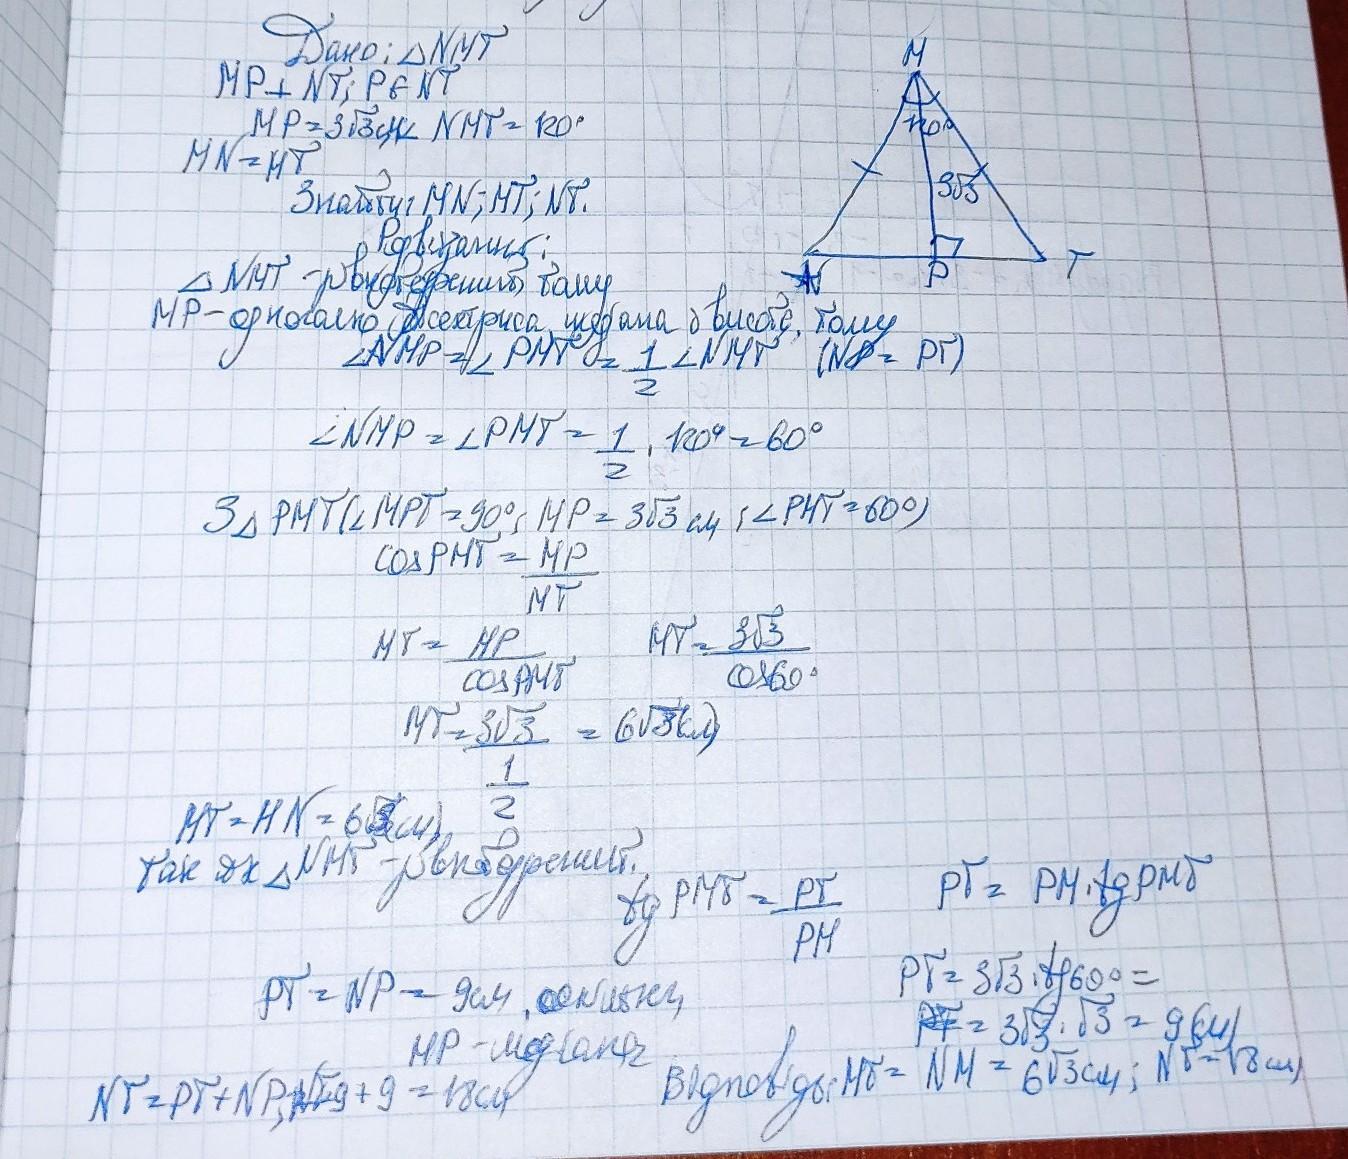 Дано: △NMT
MP⊥NT; P∈NT
MP=3√3см ∠NMT=120°
MN=MT
Знайти: MN; MT; NT.
Розв'язання:
△NMT - рівнобедрений, тому
MP - одночасно бісектриса, медіана і висота, тому
∠NMP = ∠PMT = 1/2 ∠NMT (NP = PT)
∠NMP = ∠PMT = 1/2 · 120° = 60°
З △PMT (∠MPT = 90°; MP = 3√3 см; ∠PMT = 60°)
cos PMT = MP/MT
MT = MP/cos PMT MT = 3√3/cos60°
MT = 3√3/(1/2) = 6√3 (см)
MT = MN = 6√3 (см),
так як △NMT - рівнобедрений.
tg PMT = PT/PM PT = PM · tg PMT
PT = 3√3 · tg60° =
= 3√3 · √3 = 9 (см)
PT = NP = 9см, оскільки
MP - медіана
NT = PT + NP; 9 + 9 = 18см
Відповідь: MT = NM = 6√3 см; NT = 18 см
M
120°
3√3
N
P
T